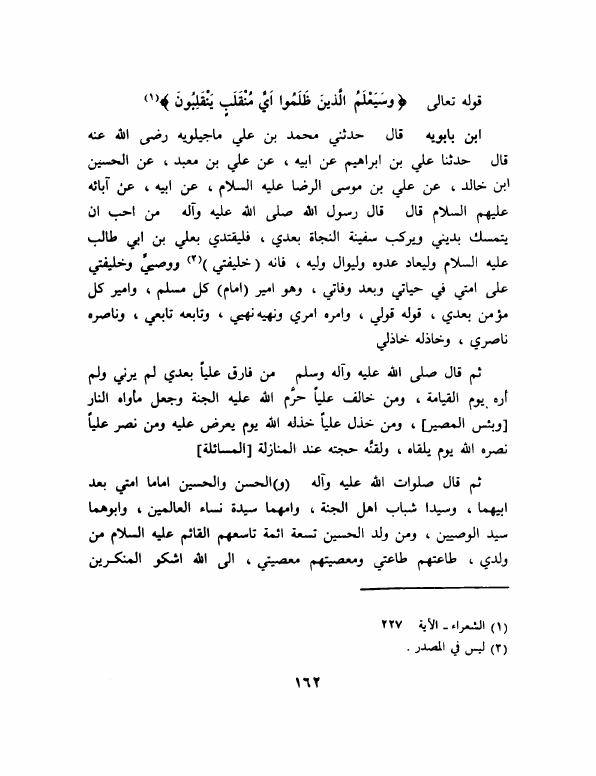 قوله تعالى ﴿ وسَيَعْلَمُ الَّذينَ ظَلَمُوا اَيَّ مُنْقَلَبٍ يَنْقَلِبُونَ ﴾(١)
ابن بابويه قال حدثني محمد بن علي ماجيلويه رضى الله عنه
قال حدثنا علي بن ابراهيم عن ابيه ، عن علي بن معبد ، عن الحسين
ابن خالد ، عن علي بن موسى الرضا عليه السلام ، عن ابيه ، عن آبائه
عليهم السلام قال قال رسول الله صلى الله عليه وآله من احب ان
يتمسك بديني ويركب سفينة النجاة بعدي ، فليقتدي بعلي بن ابي طالب
عليه السلام وليعاد عدوه وليوال وليه ، فانه ( خليفتي )(٢) ووصيّي وخليفتي
على امتي في حياتي وبعد وفاتي ، وهو امير (امام) كل مسلم ، وامير كل
مؤمن بعدي ، قوله قولي ، وامره امري ونهيه نهيي ، وتابعه تابعي ، وناصره
ناصري ، وخاذله خاذلي
ثم قال صلى الله عليه وآله وسلم من فارق علياً بعدي لم يرني ولم
أره يوم القيامة ، ومن خالف علياً حرَّم الله عليه الجنة وجعل مأواه النار
[وبئس المصير] ، ومن خذل علياً خذله الله يوم يعرض عليه ومن نصر علياً
نصره الله يوم يلقاه ، ولقنَّه حجته عند المنازلة [المسائلة]
ثم قال صلوات الله عليه وآله (و)الحسن والحسين اماما امتي بعد
ابيهما ، وسيدا شباب اهل الجنة ، وامهما سيدة نساء العالمين ، وابوهما
سيد الوصيين ، ومن ولد الحسين تسعة ائمة تاسعهم القائم عليه السلام من
ولدي ، طاعتهم طاعتي ومعصيتهم معصيتي ، الى الله اشكو المنكرين
(١) الشعراء ـ الآية ٢٢٧
(٢) ليس في المصدر .
١٦٢